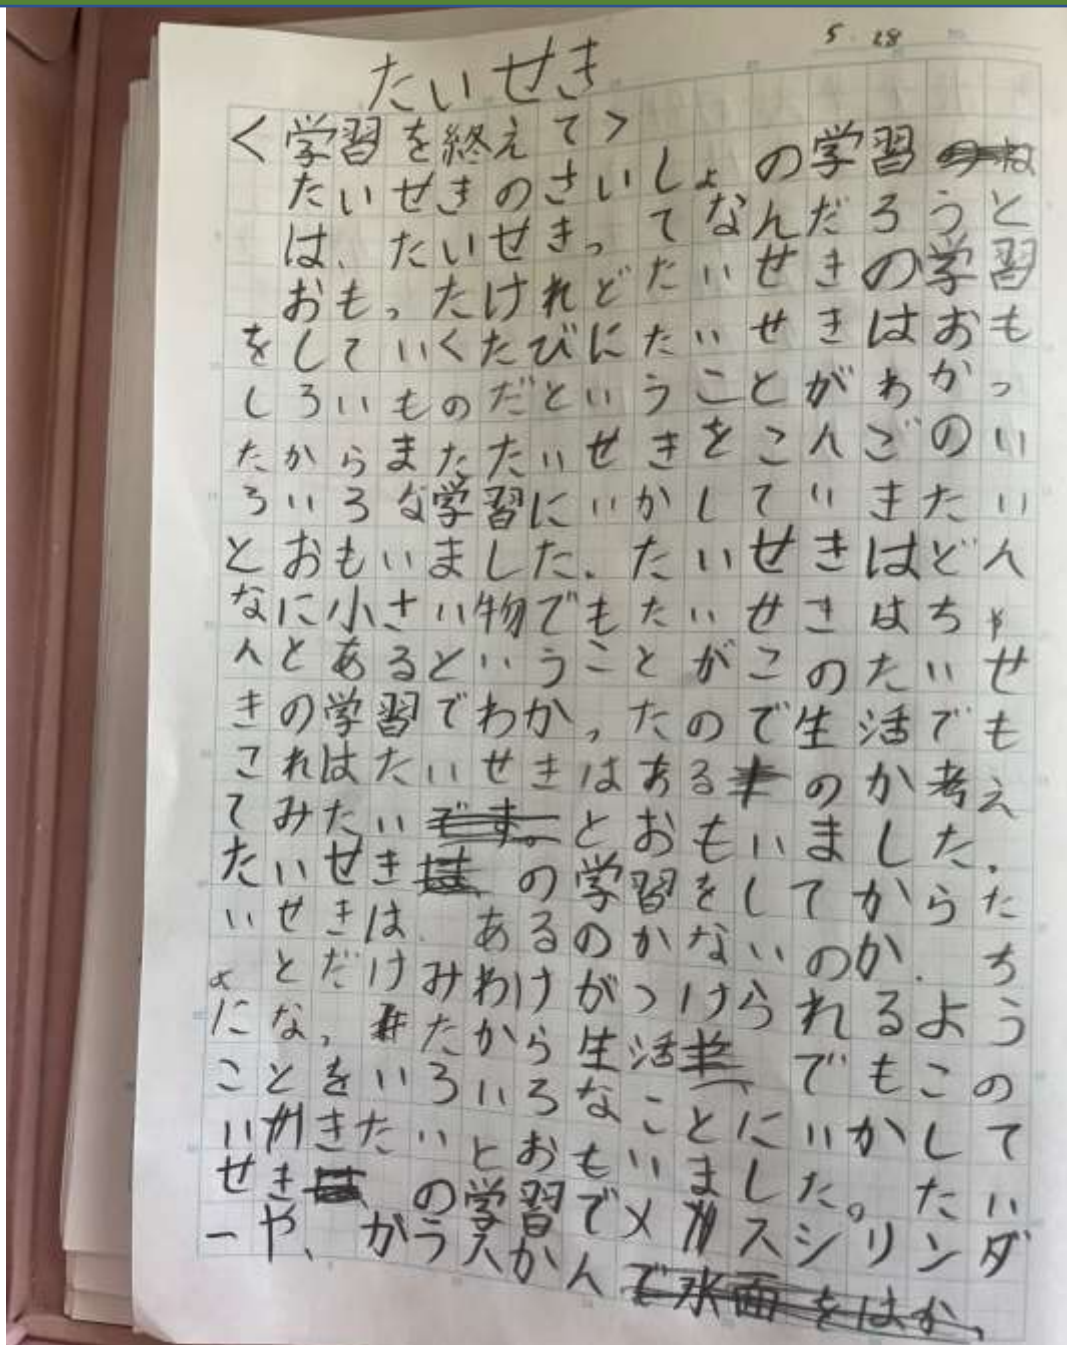 5.28
たいせき
<学習を終えて>
たいせきのさいしょの学習
は、たいせきってなんだろうと
おもったけれどたいせきの学習
をしていくたびにたいせきはおも
しろいものだということがわかっ
たからまたたいせきをこんごのい
ろいろな学習にいかしていきたい
とおもいました.たいせきはどん
なに小さい物でもたいせきはちゃ
んとあるということがこのたいせ
きの学習でわかったので生活でも
これはたいせきはあるのか考え
てみたいとおもいました.
たいせきの学習をしてからた
いせきは.あるのかないのか.ち
ょとだけみわけがつけられるよう
になったから生活でもこの
ことをいろいろなことにいかして
いきたいとおもいました。たい
せきの学習でメスシリンダ
ーや、がうスかん